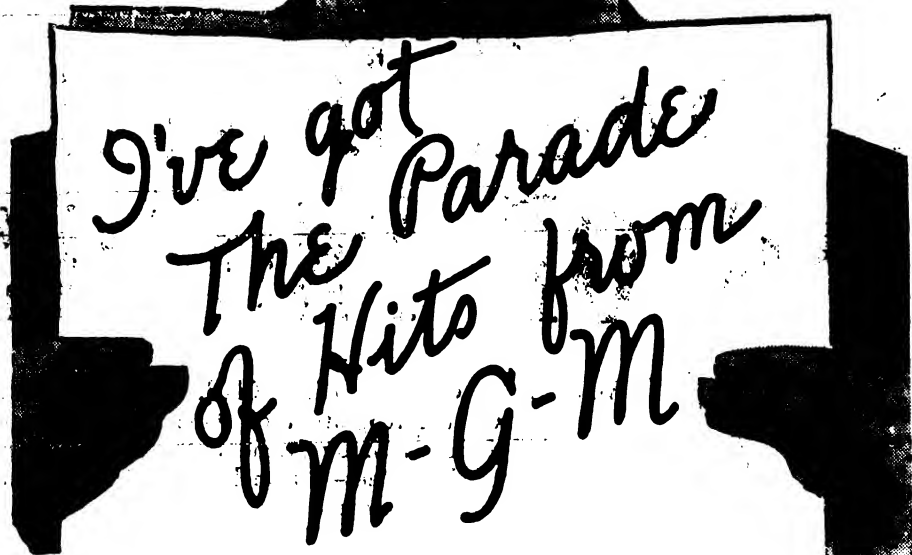 I've got
The Parade
of Hits from
M-G-M